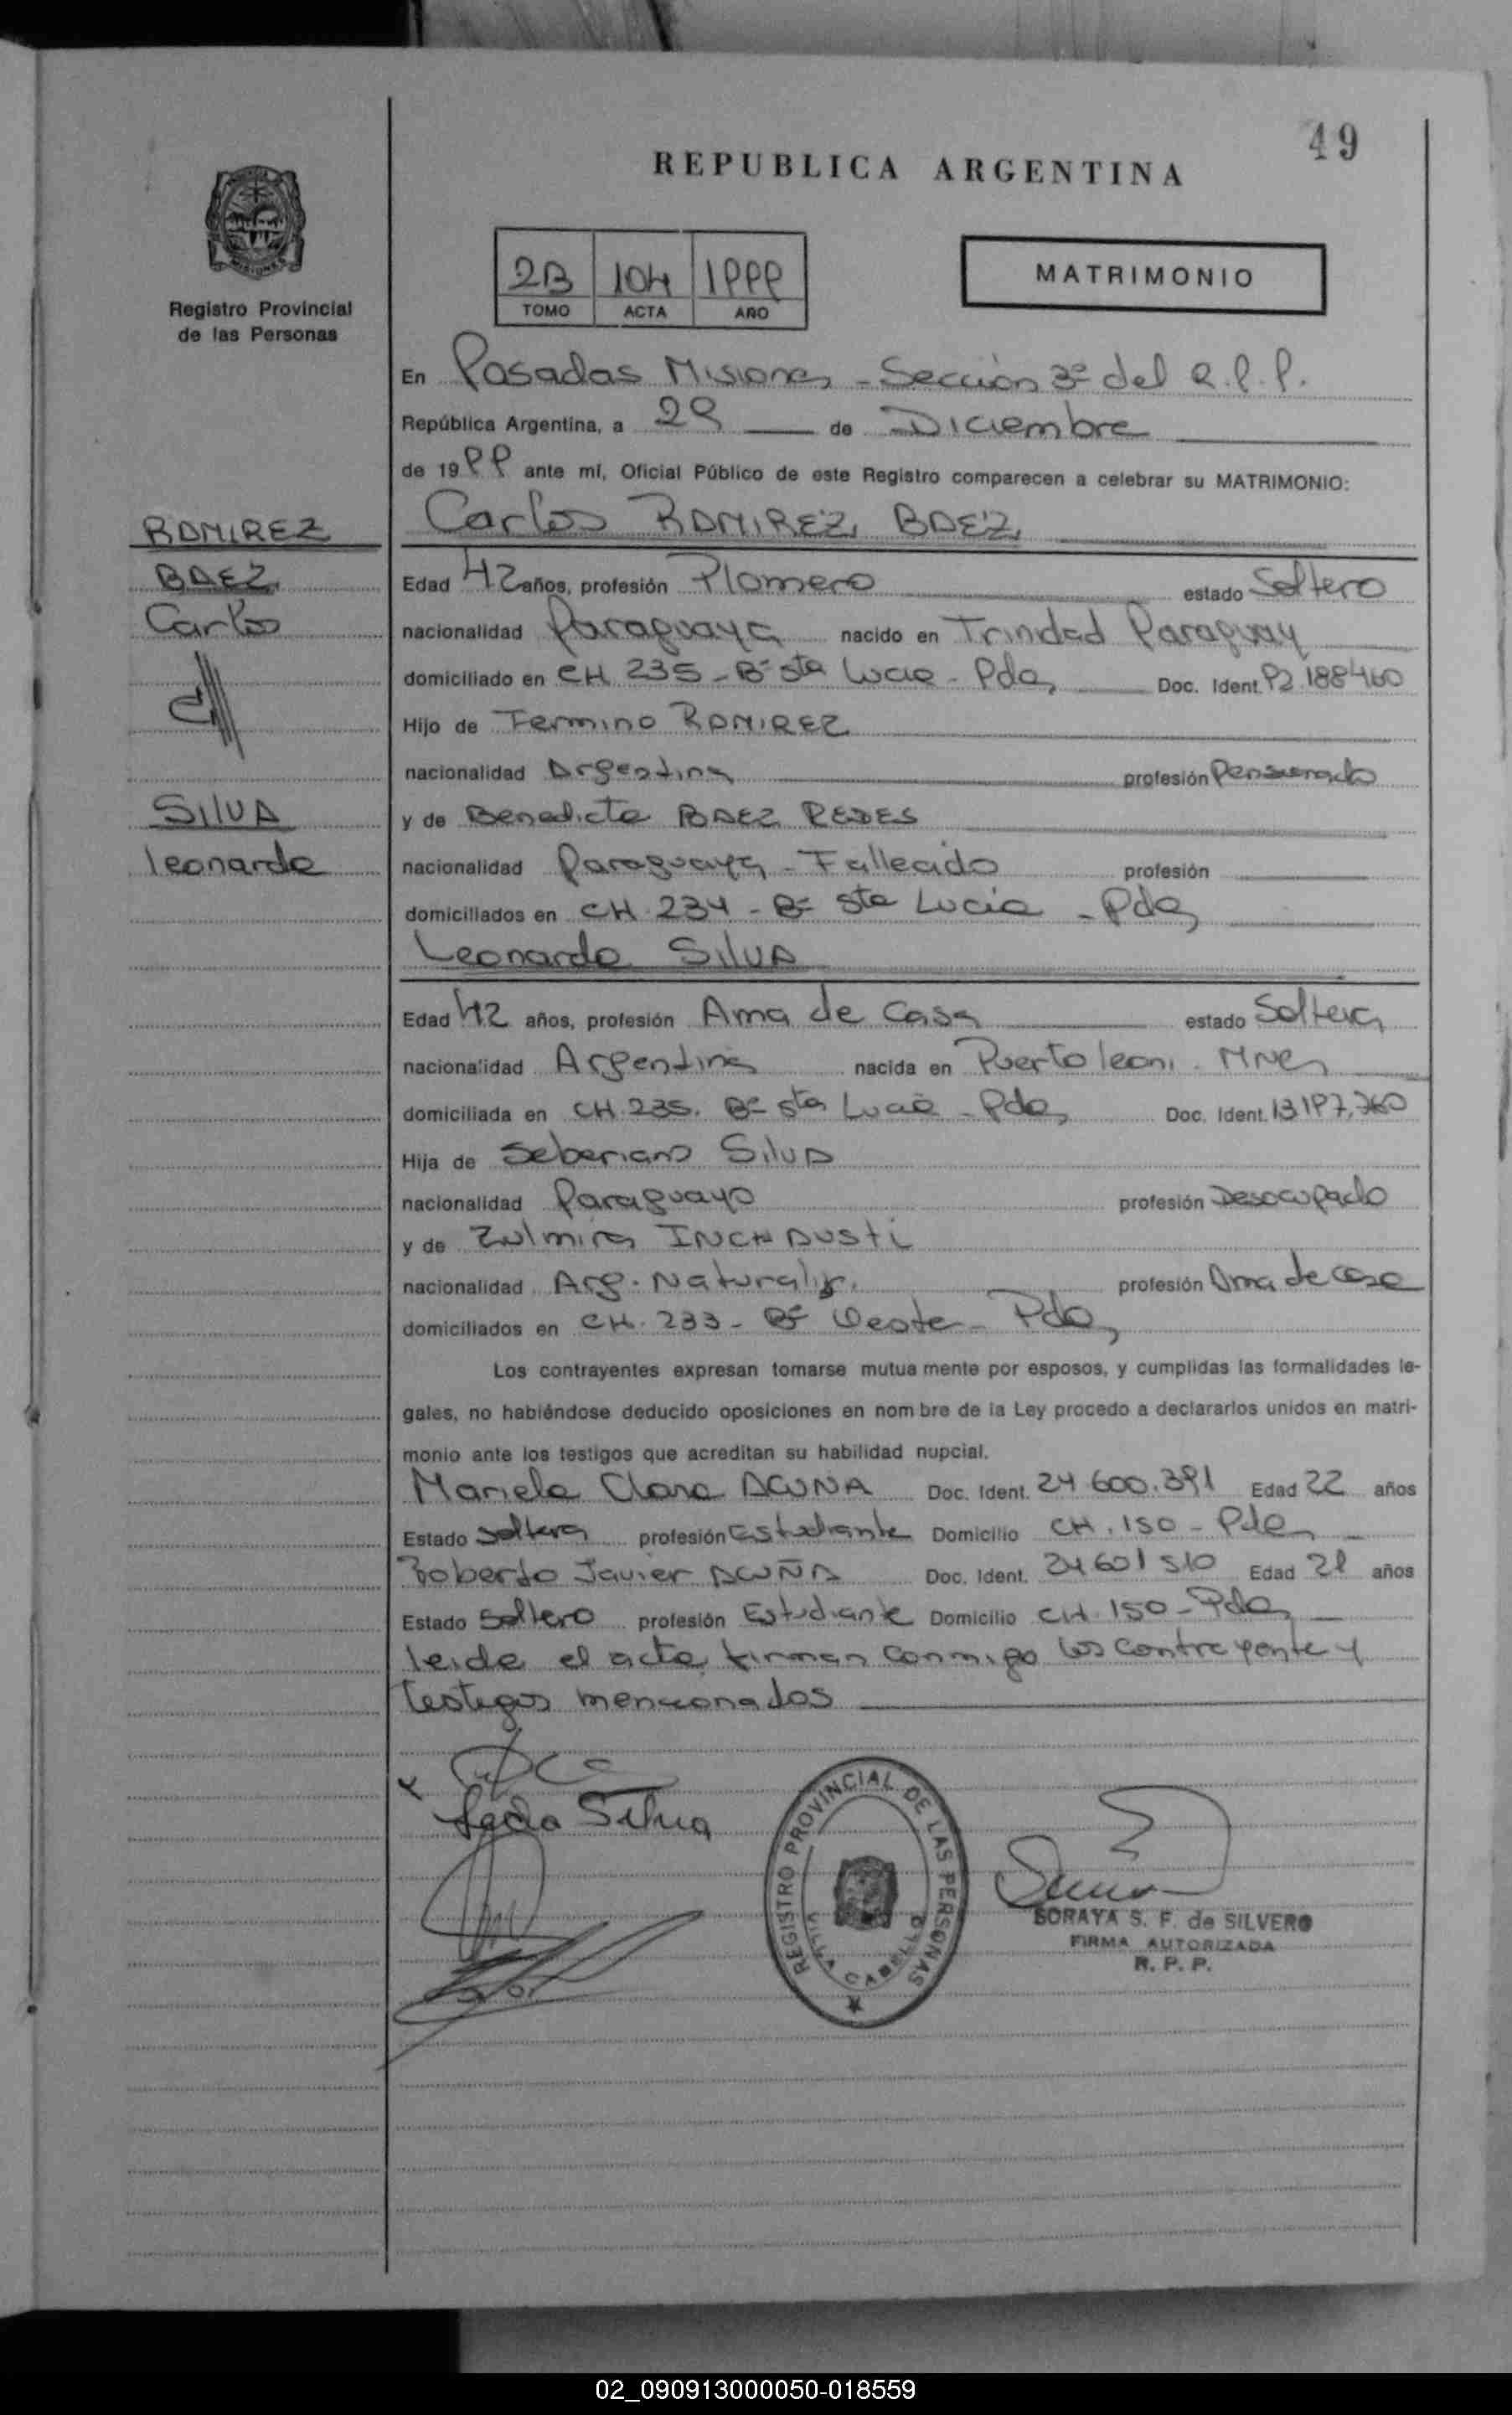 49
REPUBLICA ARGENTINA
2B 104 1999
TOMO ACTA AÑO
MATRIMONIO
Registro Provincial
de las Personas
En Posadas Misiones - Sección 3º del R.P.P.
República Argentina, a 29 de Diciembre
de 1999 ante mí, Oficial Público de este Registro comparecen a celebrar su MATRIMONIO:
RAMIREZ
BAEZ
Carlos
SILVA
Leonarda
Carlos RAMIREZ BAEZ
Edad 42 años, profesión Plomero estado Soltero
nacionalidad Paraguaya nacido en Trinidad Paraguay
domiciliado en CH 235 - Bº Sta Lucia - Pdas Doc. Ident. 92.188460
Hijo de Fermino RAMIREZ
nacionalidad Argentina profesión Pensionado
y de Benedicta BAEZ
nacionalidad Paraguaya - Fallecido profesión
domiciliados en CH. 234 - Bº Sta Lucia - Pdas
Leonarda SILVA
Edad 42 años, profesión Ama de Casa estado Soltera
nacionalidad Argentina nacida en Puerto Leoni - Mnes
domiciliada en CH. 235. Bº Sta Lucia - Pdas Doc. Ident. 13197.760
Hija de Seberiano SILVA
nacionalidad Paraguayo profesión Desocupado
y de Zulmira INCHAUSTI
nacionalidad Arg. Naturaliz. profesión Ama de casa
domiciliados en CH. 233 - Bº Oeste - Pdas
Los contrayentes expresan tomarse mutua mente por esposos, y cumplidas las formalidades le-
gales, no habiéndose deducido oposiciones en nom bre de la Ley procedo a declararlos unidos en matri-
monio ante los testigos que acreditan su habilidad nupcial.
Mariela Clara ACUNA Doc. Ident. 24.600.391 Edad 22 años
Estado Soltera profesión Estudiante Domicilio CH. 150 - Pdas
Roberto Javier ACUÑA Doc. Ident. 24601510 Edad 21 años
Estado Soltero profesión Estudiante Domicilio CH. 150 - Pdas
Leida el acta firman conmigo los contrayente y
testigos mencionados
Silva
REGISTRO PROVINCIAL DE LAS PERSONAS
VILLA CABELLO
SORAYA S. F. de SILVERO
FIRMA AUTORIZADA
R. P. P.
02_090913000050-018559